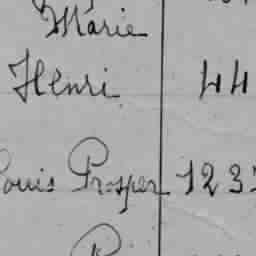 Marie
Henri 44
Louis Prosper 123